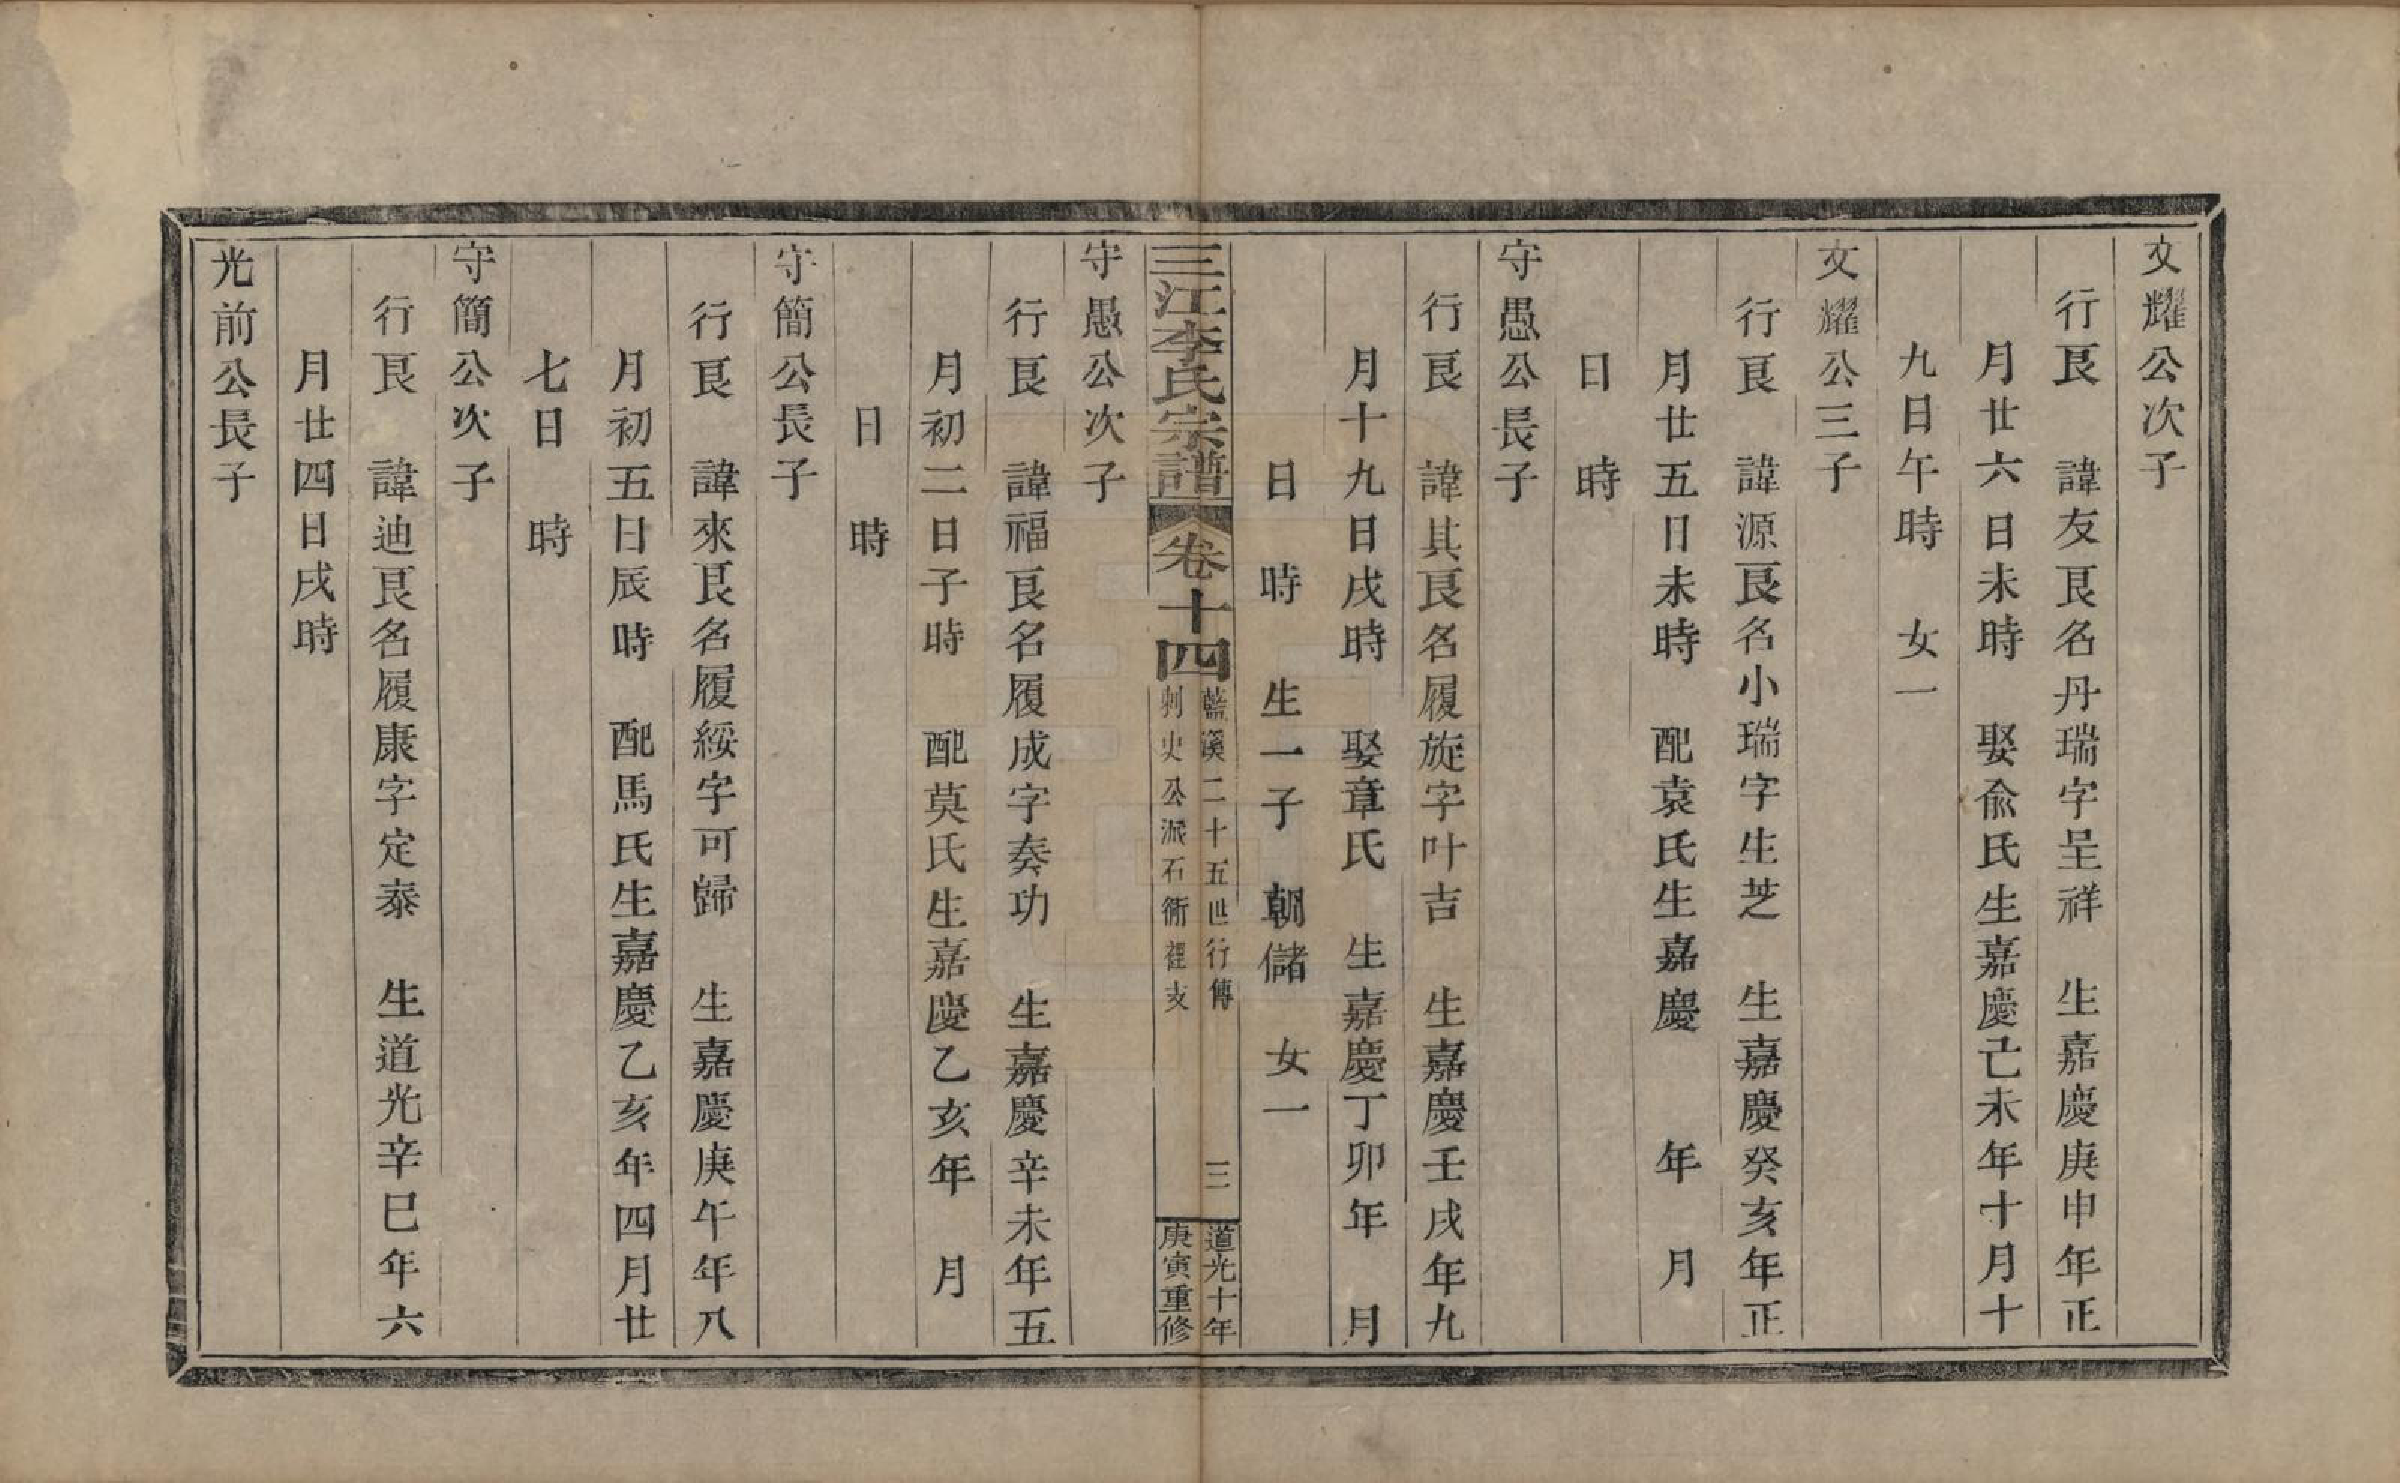 文耀公次子
行艮 諱友艮名丹瑞字呈祥 生嘉慶庚申年正
月廿六日未時 娶俞氏生嘉慶己未年十月十
九日午時 女一
文耀公三子
行艮 諱源艮名小瑞字生芝 生嘉慶癸亥年正
月廿五日未時 配袁氏生嘉慶 年 月
日 時
守愚公長子
行艮 諱其艮名履旋字叶吉 生嘉慶壬戌年九
月十九日戌時 娶章氏 生嘉慶丁卯年 月
日 時 生一子 朝儲 女一
三江李氏宗譜 卷十四
藍溪二十五世行傳 三
刺史公派石衕裡支
道光十年
庚寅重修
守愚公次子
行艮 諱福艮名履成字奏功 生嘉慶辛未年五
月初二日子時 配莫氏生嘉慶乙亥年 月
日 時
守簡公長子
行艮 諱來艮名履綏字可歸 生嘉慶庚午年八
月初五日辰時 配馬氏生嘉慶乙亥年四月廿
七日 時
守簡公次子
行艮 諱迪艮名履康字定泰 生道光辛巳年六
月廿四日戌時
光前公長子